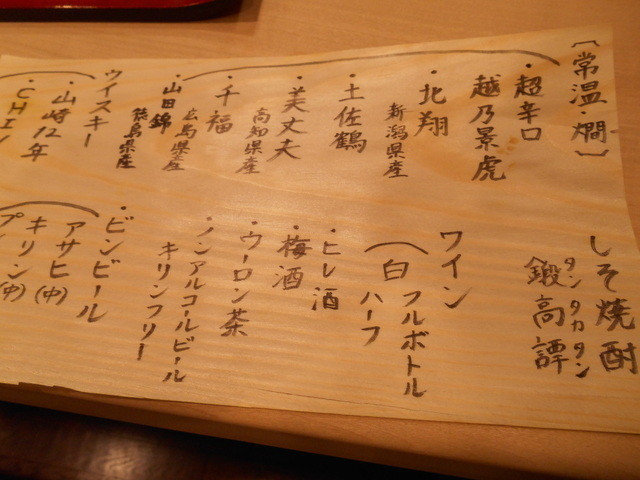 〔常温・燗〕
・超辛口
越乃景虎
・北翔
新潟県産
・土佐鶴
・美丈夫
高知県産
・千福
広島県産
・山田錦
徳島県産
ウイスキー
・山崎12年
しそ焼酎
タンタカタン
鍛高譚
ワイン
(白
フルボトル
ハーフ
・ヒレ酒
・梅酒
・ウーロン茶
・ノンアルコールビール
キリンフリー
・ビンビール
アサヒ(中)
キリン(中)